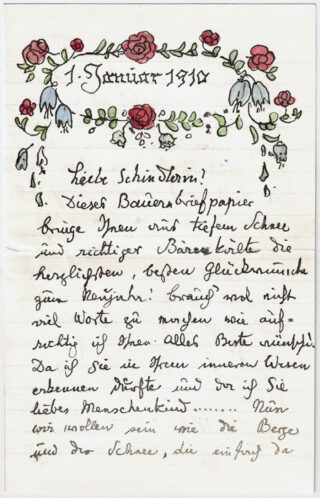 1. Januar 1910
Liebe Schindlerin!
Dieses Bauernbriefpapier
bringe Ihnen aus tiefem Schnee
und richtiger Bärenkälte die
herzlichsten, besten Glückwünsche
zum Neujahr! brauch' wol nicht
viel Worte zu machen wie auf-
richtig ich Ihnen Alles Beste wünsche!
Da ich Sie in Ihrem inneren Wesen
erkennen durfte und da ich Sie
liebes Menschenkind ........ Nun
wir wollen sein wie die Berge
und der Schnee, die einfach da